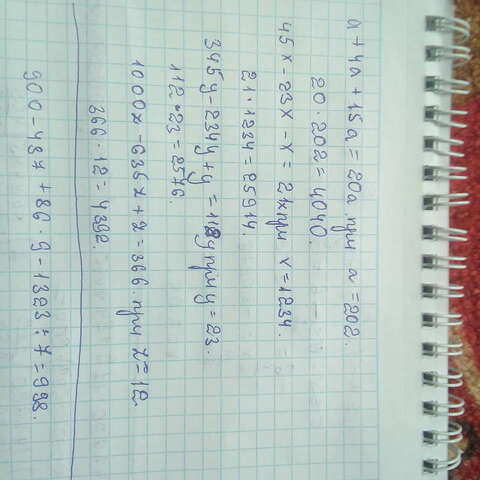 a + 4a + 15a = 20a при a = 202.
20 · 202 = 4040.
45x - 23x - x = 21x при x = 1234.
21 · 1234 = 25914.
345y - 234y + y = 112y при y = 23.
112 · 23 = 2576.
1000z - 635z + z = 366 при z = 12
366 · 12 = 4392.
900 - 487 + 86 · 9 - 1323 : 7 = 998.